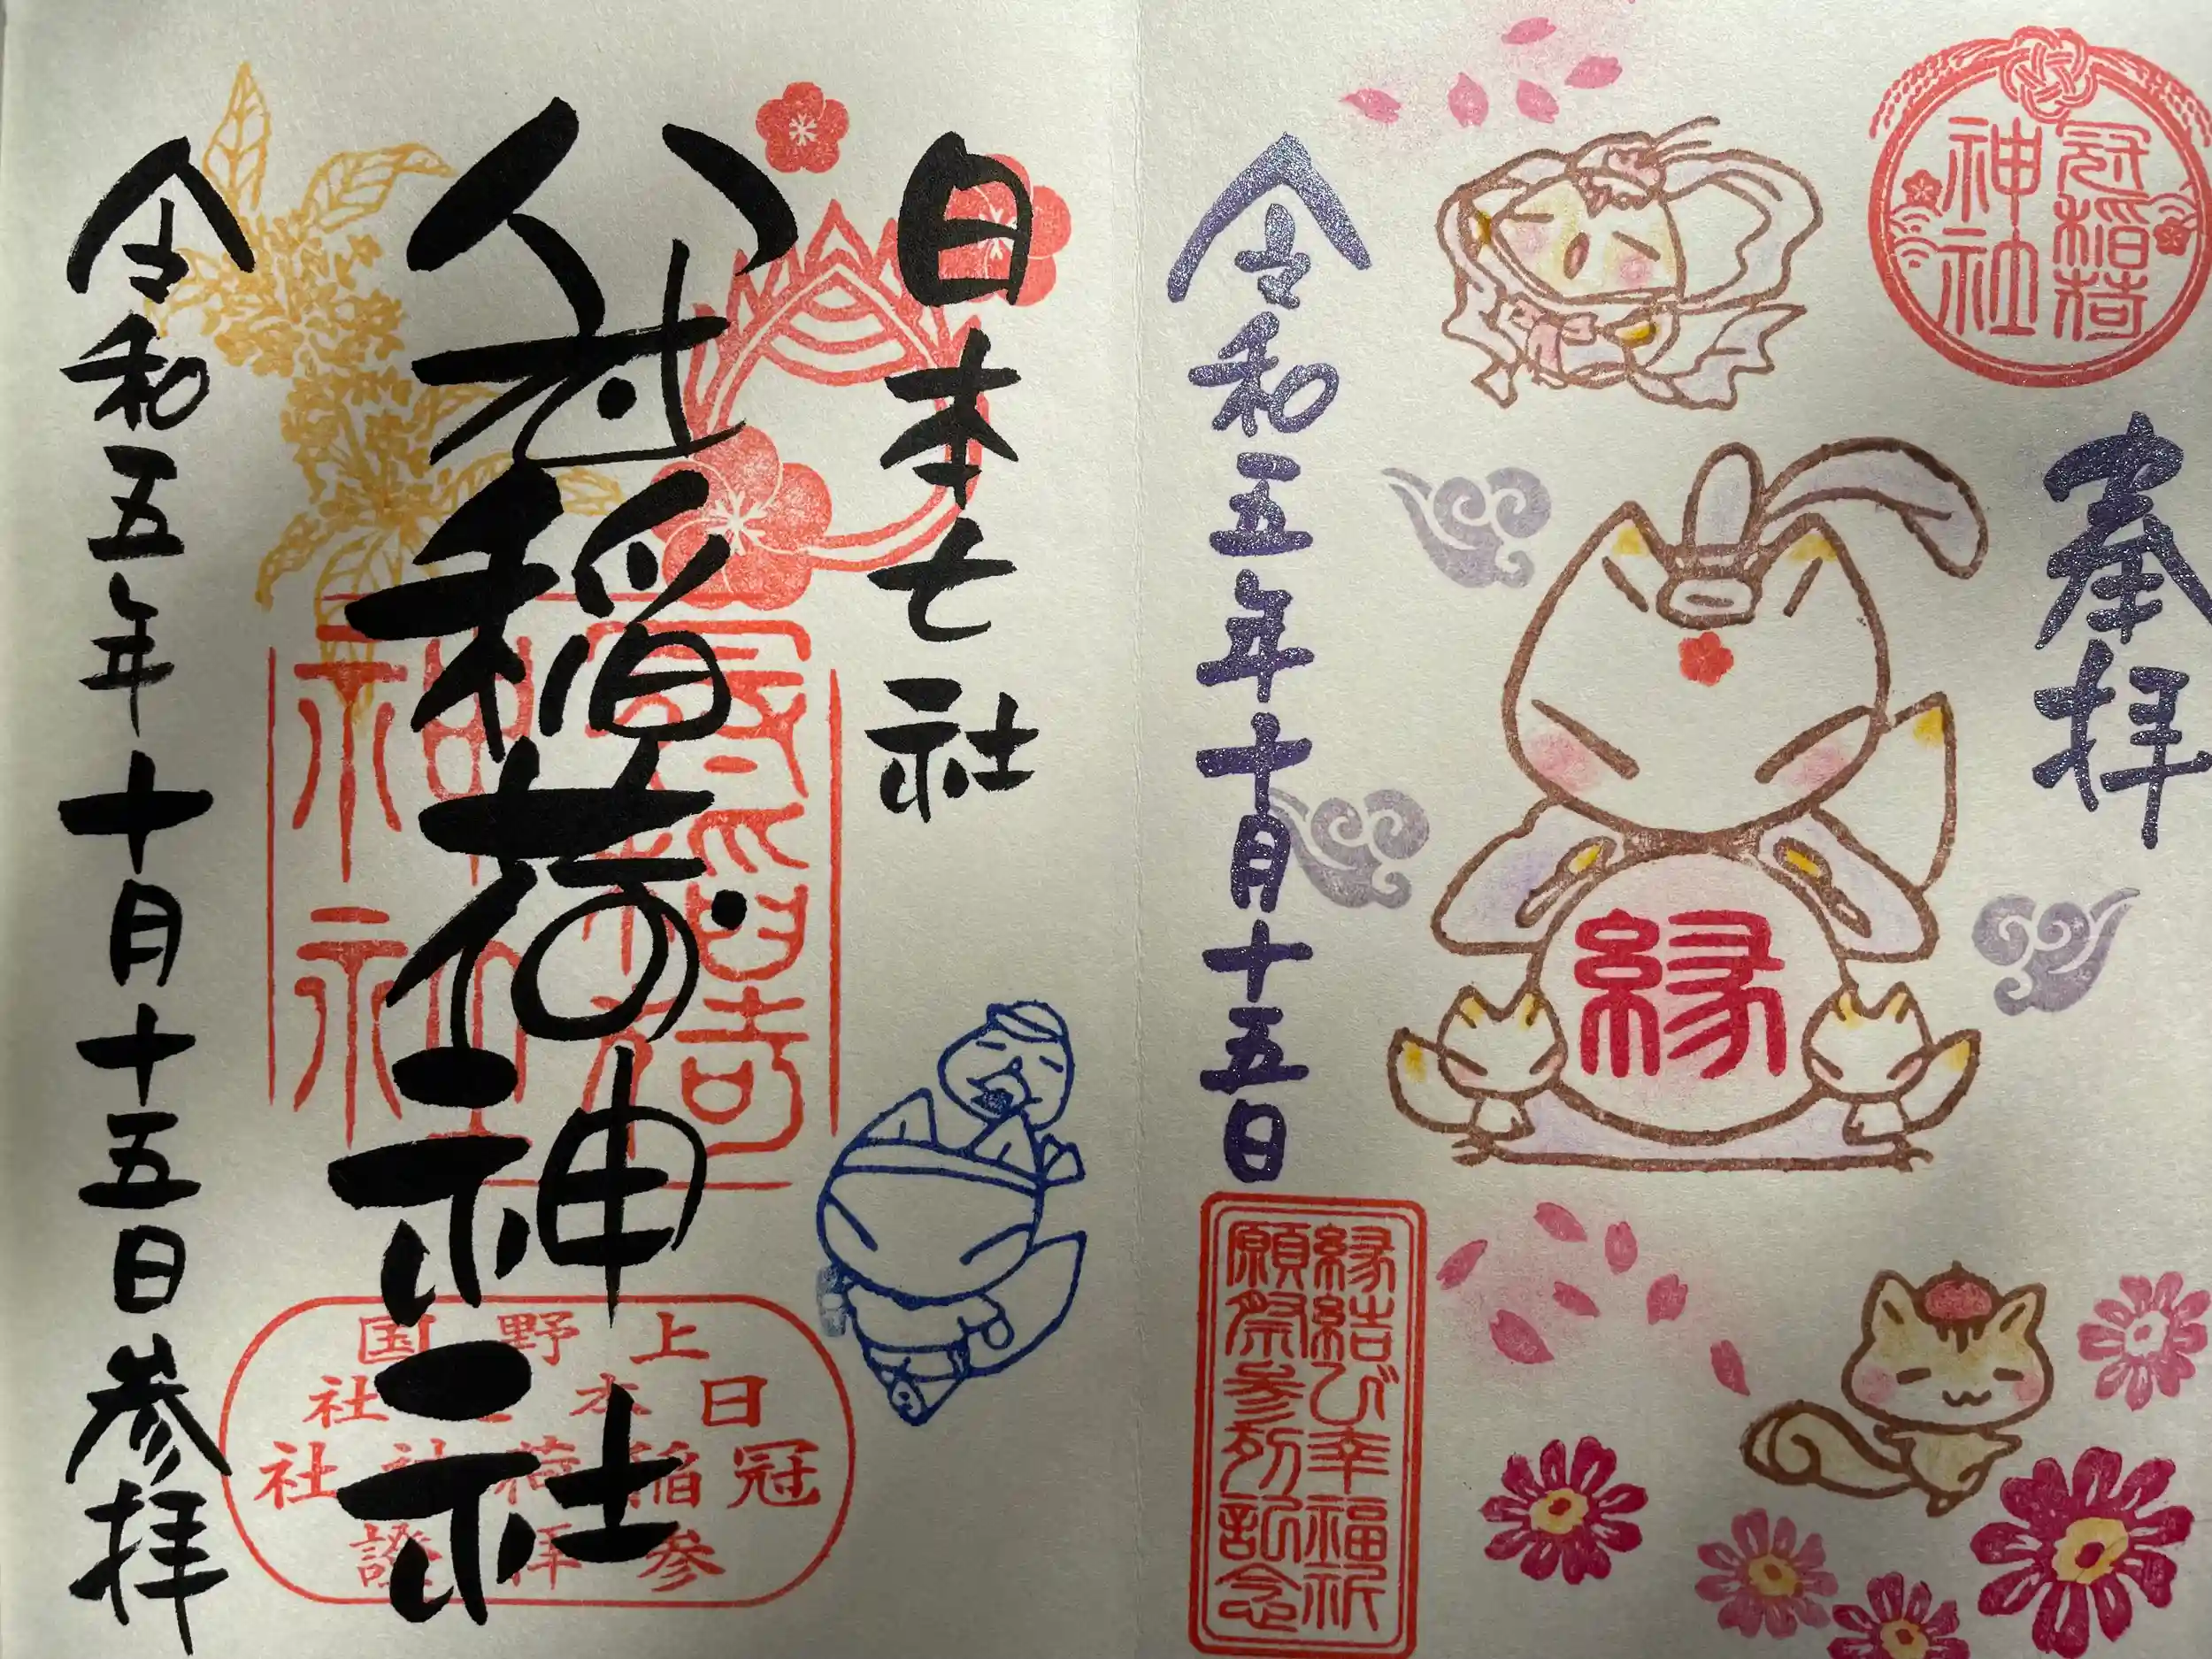 冠稲荷
神社
奉拝
縁
令和五年十月十五日
縁結び幸福祈
願祭参列記念
日本七社
冠稲荷神社
冠稲荷
神社
上野国
日本七社
冠稲荷神社
参拝證
令和五年十月十五日参拝